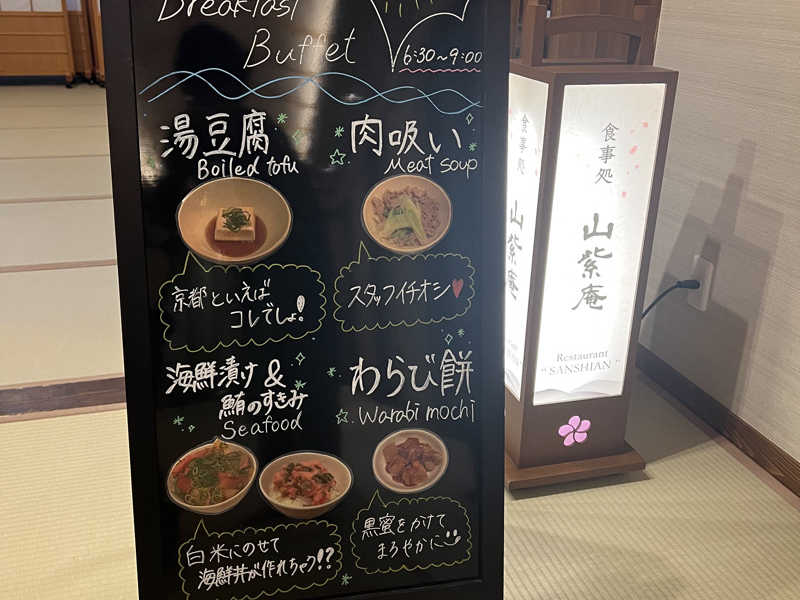 Breakfast
Buffet
6:30~9:00
湯豆腐
Boiled tofu
肉吸い
Meat soup
京都といえば
コレでしょ!
スタッフイチオシ
海鮮漬け&
鮪のすきみ
Seafood
わらび餅
Warabi mochi
白米にのせて
海鮮丼が作れちゃう!?
黒蜜をかけて
まろやかに
食事処
山紫庵
食事処
山紫庵
Restaurant
"SANSHIAN"